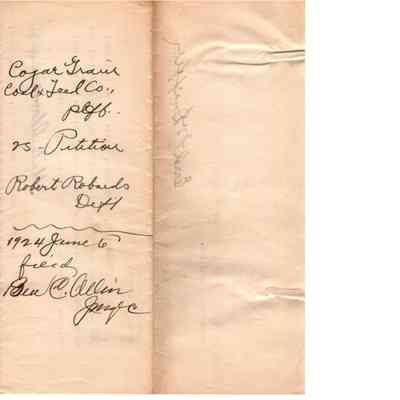 Cogar Grain
Coal & Feed Co.,
plff.
vs - Petition
Robert Robards
Deft
1924 June 6
filed
Ben C. Allin